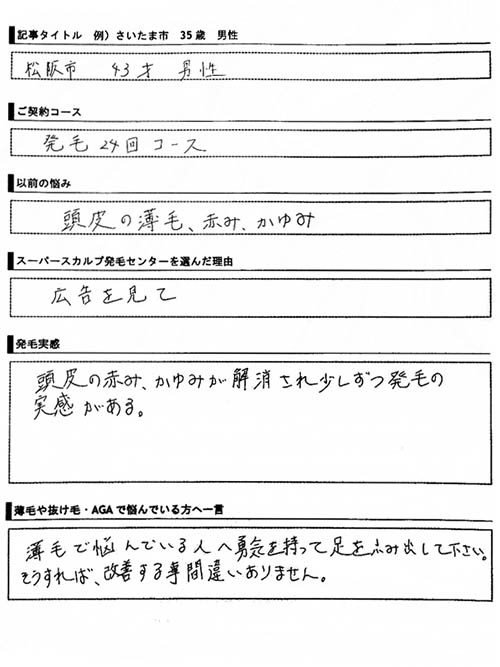 記事タイトル 例）さいたま市 35歳 男性
松阪市 43才 男性
ご契約コース
発毛24回コース
以前の悩み
頭皮の薄毛、赤み、かゆみ
スーパースカルプ発毛センターを選んだ理由
広告を見て
発毛実感
頭皮の赤み、かゆみが解消され少しずつ発毛の
実感がある。
薄毛や抜け毛・AGAで悩んでいる方へ一言
薄毛で悩んでいる人へ勇気を持って足をふみ出して下さい。
そうすれば、改善する事間違いありません。